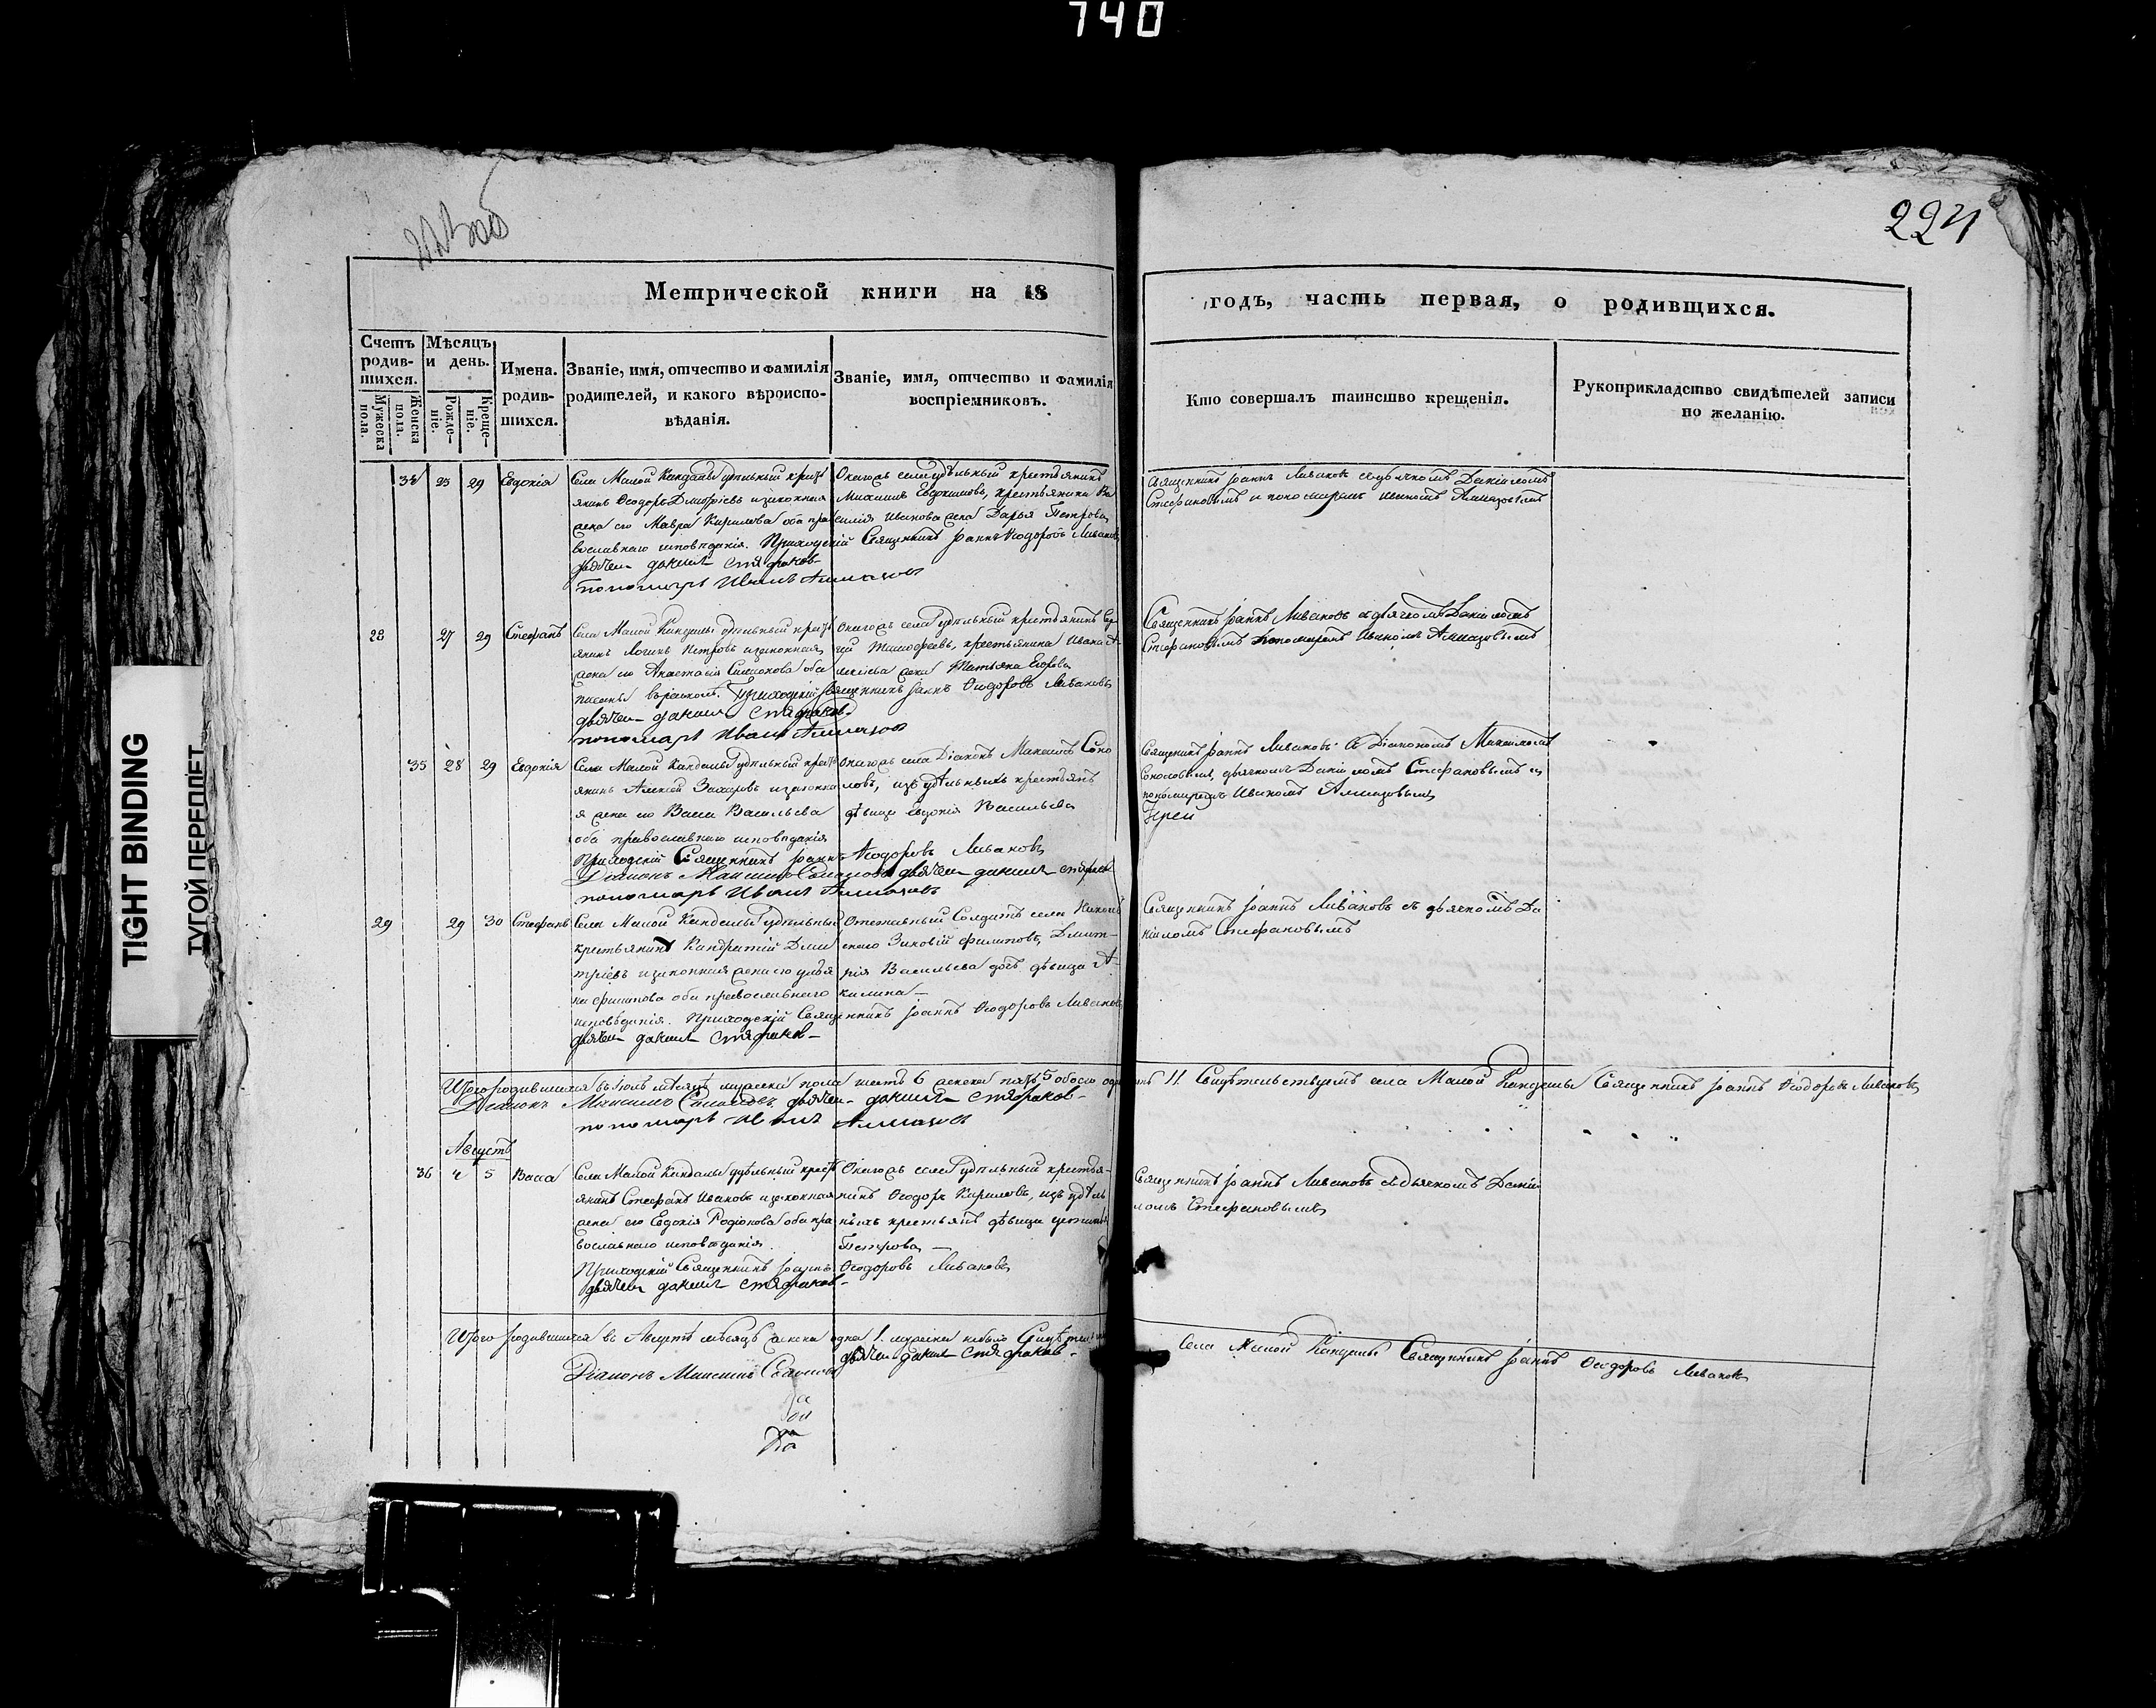 740
224
Метрической книги на 18
годъ, часть первая, о родившихся.
Счетъ родив-шихся.
Мужеска пола.
Женска пола.
Мѣсяцъ и день.
Рожде-ніе.
Креще-ніе.
Имена. родив-шихся.
Званіе, имя, отчество и фамилія
родителей, и какого вѣроиспо-
вѣданія.
Званіе, имя, отчество и фамилія
воспріемниковъ.
Кто совершалъ таинство крещенія.
Рукоприкладство свидѣтелей записи
по желанію.
34 25 29 Евдокія
Села Малой Кандалы удѣльный крестъ
янинъ Ѳеодоръ Дмитріевъ и законная
жена его Мавра Кирилова оба пра
вославнаго исповѣданія. Приходскій Священникъ Іоаннъ Ѳеодоровъ Ливановъ
дьячекъ данилъ стефановъ
пономарь Иванъ Алмазовъ
Онагожъ села удѣльный крестьянинъ
Евдокимовъ, крестьянина Ва
силія Иванова жена Дарья Петрова
Священникъ Іоаннъ Ливановъ съ дьячкомъ Даніиломъ
Стефановымъ и пономаремъ Иваномъ Алмазовымъ
28 27 29 Стефанъ
Села Малой Кандалы удѣльный крестъ
янинъ Логинъ Петровъ и законная
жена его Анастасія Симионова оба
Приходскій Священникъ Іоаннъ Ѳеодоровъ Ливановъ
дьячекъ данилъ стефановъ
пономарь Иванъ Алмазовъ
Онагожъ села удѣльный крестьянинъ
Тимофеевъ, крестьянина Ивана
жена Татьяна Егорова
Священникъ Іоаннъ Ливановъ съ дьячкомъ Даніиломъ
Стефановымъ пономаремъ Иваномъ Алмазовымъ
35 28 29 Евдокія
Села Малой Кандалы удѣльный крестъ
янинъ Алексей Захаровъ и законна
я жена его Васса Васильева
оба православнаго исповѣданія
Приходскій Священникъ Іоаннъ Ѳеодоровъ Ливановъ
Діаконъ Максимъ Соколовъ дьячекъ данилъ стефановъ
пономарь Иванъ Алмазовъ
Онагожъ села Діаконъ Максимъ Соко
ловъ, изъ удѣльныхъ крестьянъ
дѣвица Евдокія Васильева
Священникъ Іоаннъ Ливановъ съ Діакономъ Максимомъ
Соколовымъ, дьячкомъ Даніиломъ Стефановымъ и
пономаремъ Иваномъ Алмазовымъ
Іереи
29 29 30 Стефанъ
Села Малой Кандалы удѣльный
крестьянинъ Кандратій Дми
тріевъ и законная жена его
Филипова оба православнаго
исповѣданія. Приходскій Священникъ Іоаннъ Ѳеодоровъ Ливановъ
дьячекъ данилъ стефановъ
Отставный Солдатъ села
Зиновій Филиповъ, Дмит-
рія Васильева дочь дѣвица А-
килина
Священникъ Іоаннъ Ливановъ съ дьячкомъ Да
ніиломъ Стефановымъ
Итого родившихся въ Іюлѣ мѣсяцѣ мужеска пола шесть 6 женска пять 5 обоего 11 Свидѣтельствуемъ села Малой Кандалы Священникъ Іоаннъ Ѳеодоровъ Ливановъ
Діаконъ Максимъ Соколовъ дьячекъ данилъ стефановъ
пономарь Иванъ Алмазовъ
Августъ
36 4 5 Васса
Села Малой Кандалы удѣльный крестъ
янинъ Стефанъ Ивановъ и законная
жена его Евдокія Родіонова оба пра
вославнаго исповѣданія.
Приходскій Священникъ Іоаннъ Ѳеодоровъ Ливановъ
дьячекъ данилъ стефановъ
Онагожъ села удѣльный крестья-
нинъ Ѳеодоръ Кириловъ, изъ удѣль
ныхъ крестьянъ дѣвица
Петрова
Священникъ Іоаннъ Ливановъ съ дьячкомъ Дані
ломъ Стефановымъ
Итого родившихся въ Августѣ мѣсяцѣ женска одна 1. мужеска небыло
села Малой Кандалы Священникъ Іоаннъ Ѳеодоровъ Ливановъ
дьячекъ данилъ стефановъ
Діаконъ Максимъ Соколовъ
TIGHT BINDING
ТУГОЙ ПЕРЕПЛЕТ